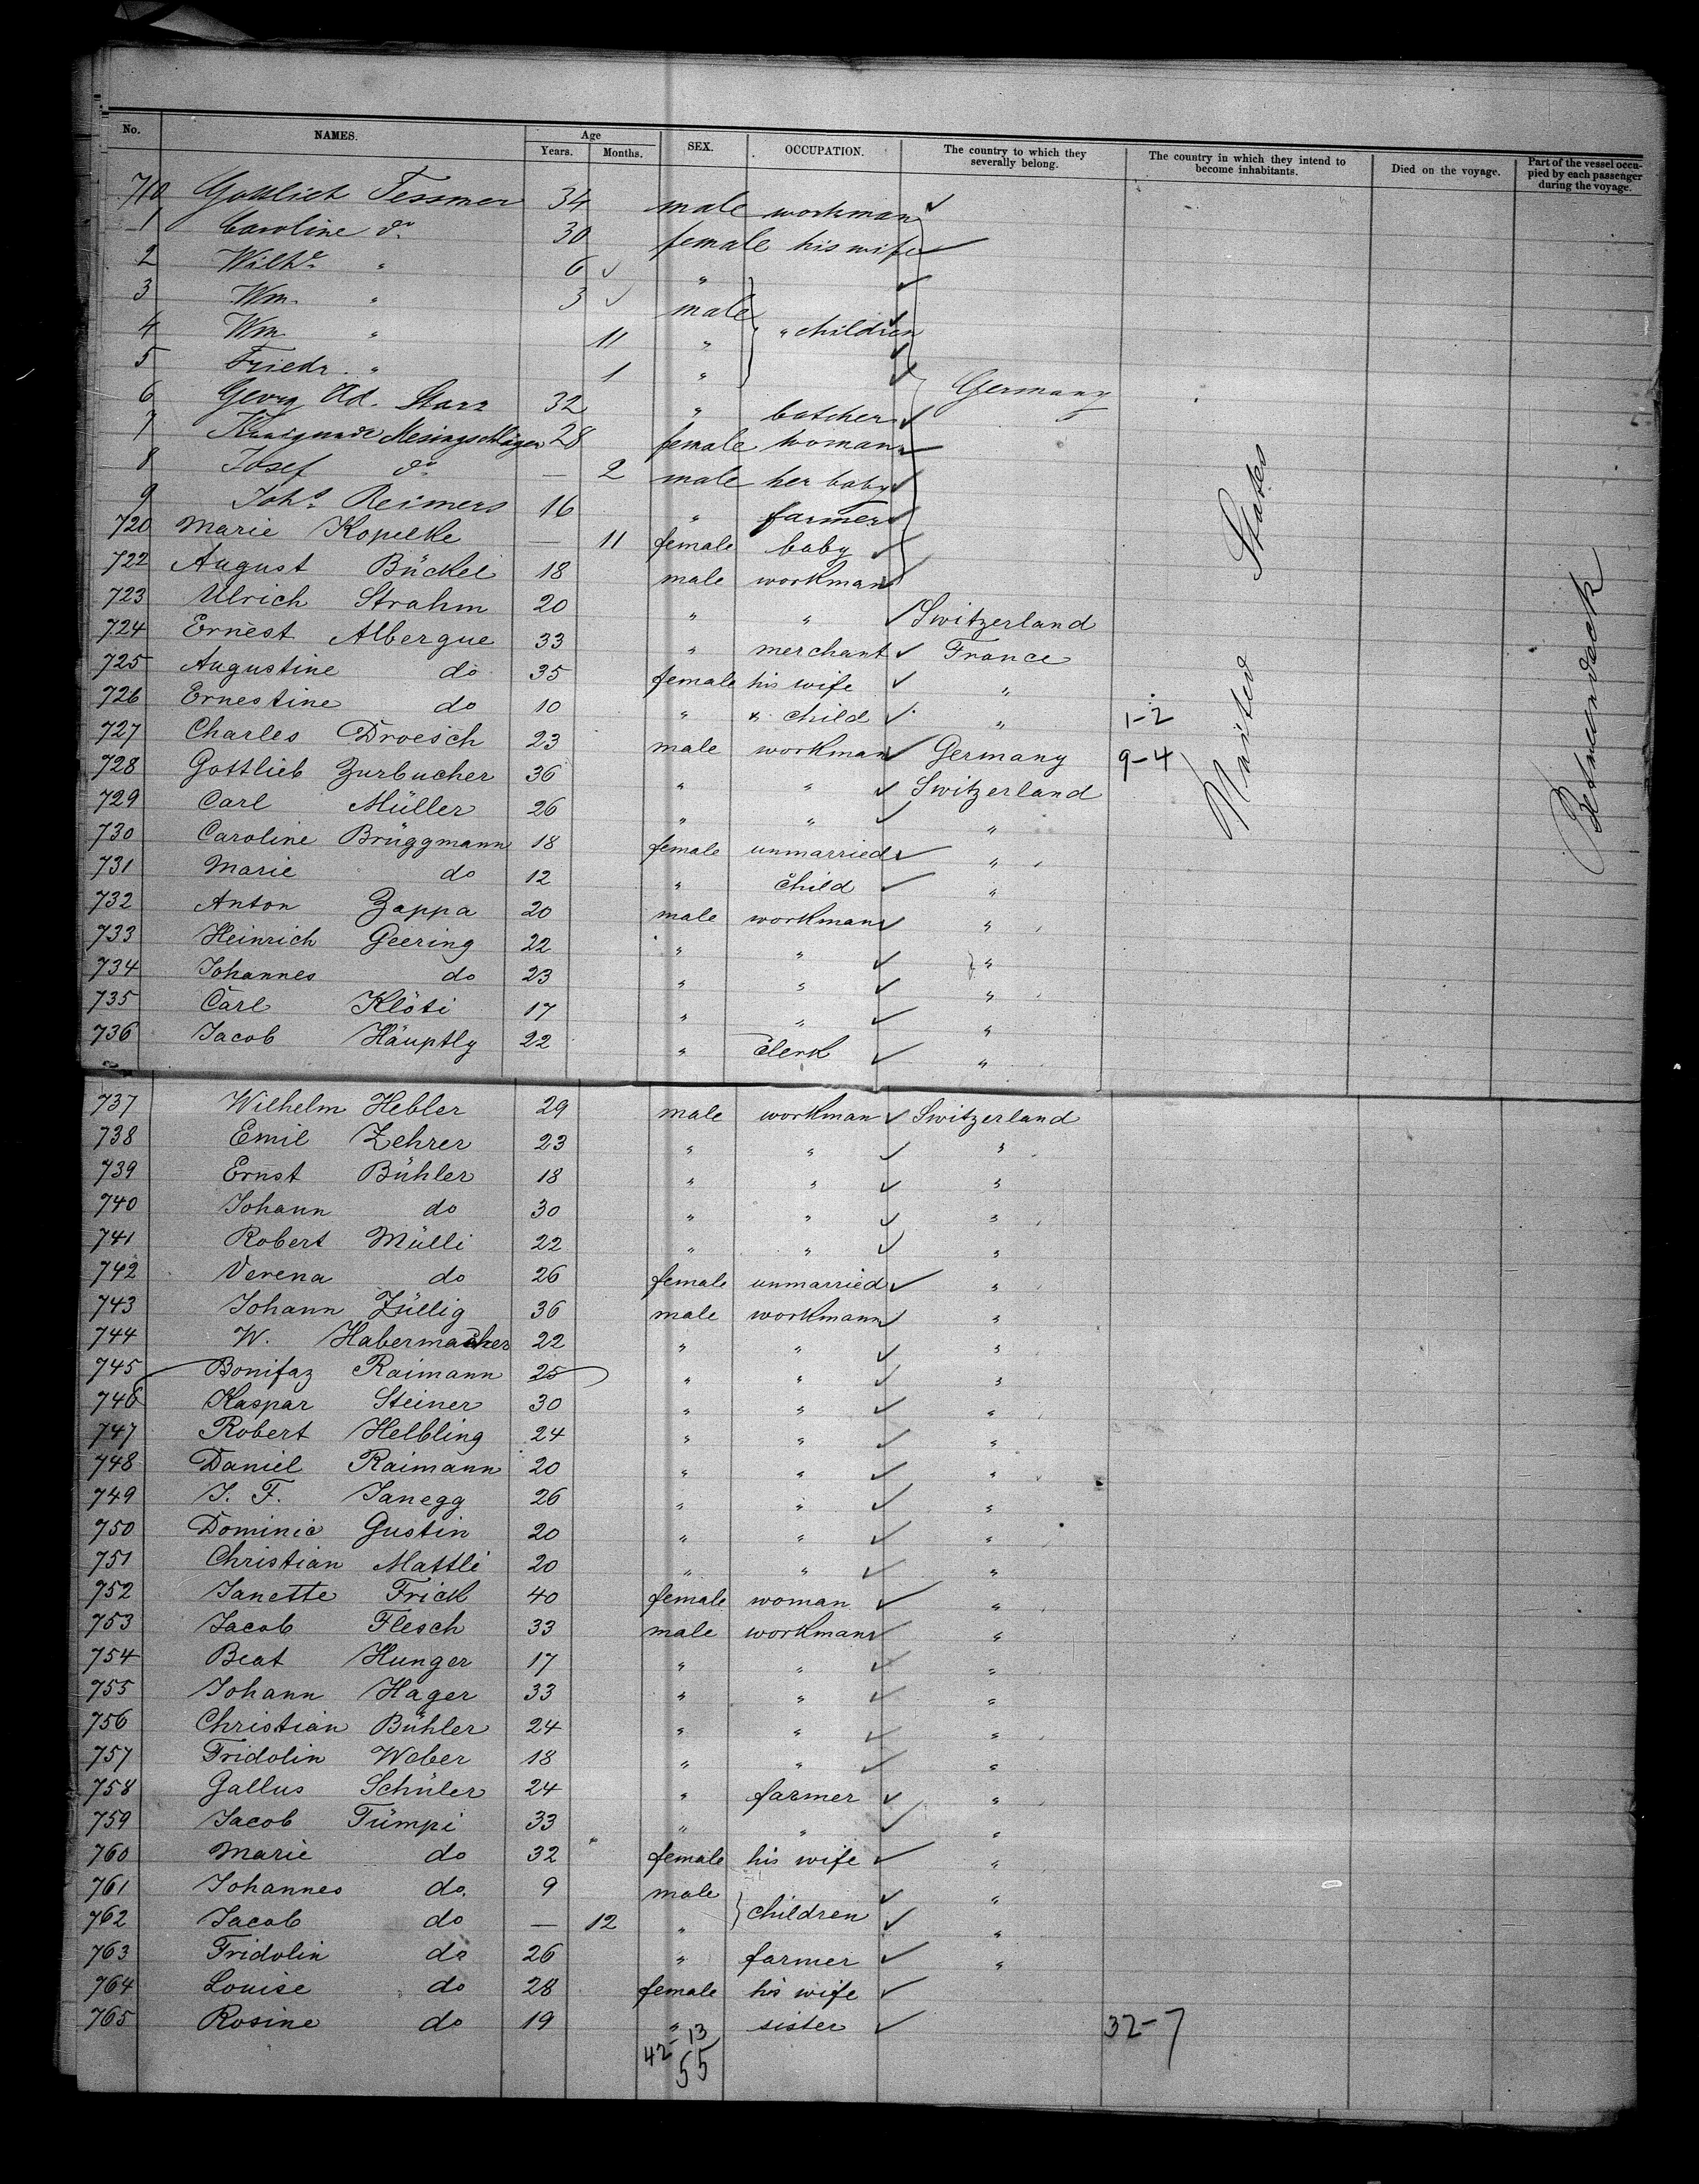 No. NAMES. Age SEX. OCCUPATION. The country to which they severally belong. The country in which they intend to become inhabitants. Died on the voyage. Part of the vessel occupied by each passenger during the voyage.
Years. Months.
710 Gottlieb Tessmer 34 male workman
1 Caroline do 30 female his wife
2 Wilhe " 6 "
3 Wm. " 3 male
4 Wm. " 11 " " children
5 Friedr. " 1 "
6 Georg Ad. 32 " butcher Germany
7 28 female woman
8 Josef do — 2 male her baby
9 Johs Reimers 16 " farmer
720 Marie Kopelke — 11 female baby
722 August Bückel 18 male workman
723 Ulrich Strahm 20 " " Switzerland
724 Ernest Albergue 33 " merchant France
725 Augustine do 35 female his wife "
726 Ernestine do 10 " " child " 1-2
727 Charles Droesch 23 male workman Germany 9-4
728 Gottlieb Zurbucher 36 " " Switzerland
729 Carl Müller 26 " " "
730 Caroline Brüggmann 18 female unmarried "
731 Marie do 12 " child "
732 Anton Zappa 20 male workman "
733 Heinrich Geering 22 " " "
734 Johannes do 23 " " "
735 Carl Klöti 17 " " "
736 Jacob Häuptly 22 " clerk "
United States
Betweendeck
737 Wilhelm Hebler 29 male workman Switzerland
738 Emil Zehrer 23 " " "
739 Ernst Bühler 18 " " "
740 Johann do 30 " " "
741 Robert Mülli 22 " " "
742 Verena do 26 female unmarried "
743 Johann Züllig 36 male workman "
744 W. Habermacher 22 " " "
745 Bonifaz Raimann 25 " " "
746 Kaspar Steiner 30 " " "
747 Robert Helbling 24 " " "
748 Daniel Raimann 20 " " "
749 J. F. Janegg 26 " " "
750 Dominic Gustin 20 " " "
751 Christian Mattli 20 " " "
752 Janette Frick 40 female woman "
753 Jacob Flesch 33 male workman "
754 Beat Hunger 17 " " "
755 Johann Hager 33 " " "
756 Christian Bühler 24 " " "
757 Fridolin Weber 18 " " "
758 Gallus Schüler 24 " farmer "
759 Jacob Tümpi 33 " " "
760 Marie do 32 female his wife "
761 Johannes do. 9 male children "
762 Jacob do — 12 " "
763 Fridolin do 26 " farmer "
764 Louise do 28 female his wife
765 Rosine do 19 " sister 32-7
42-13
55